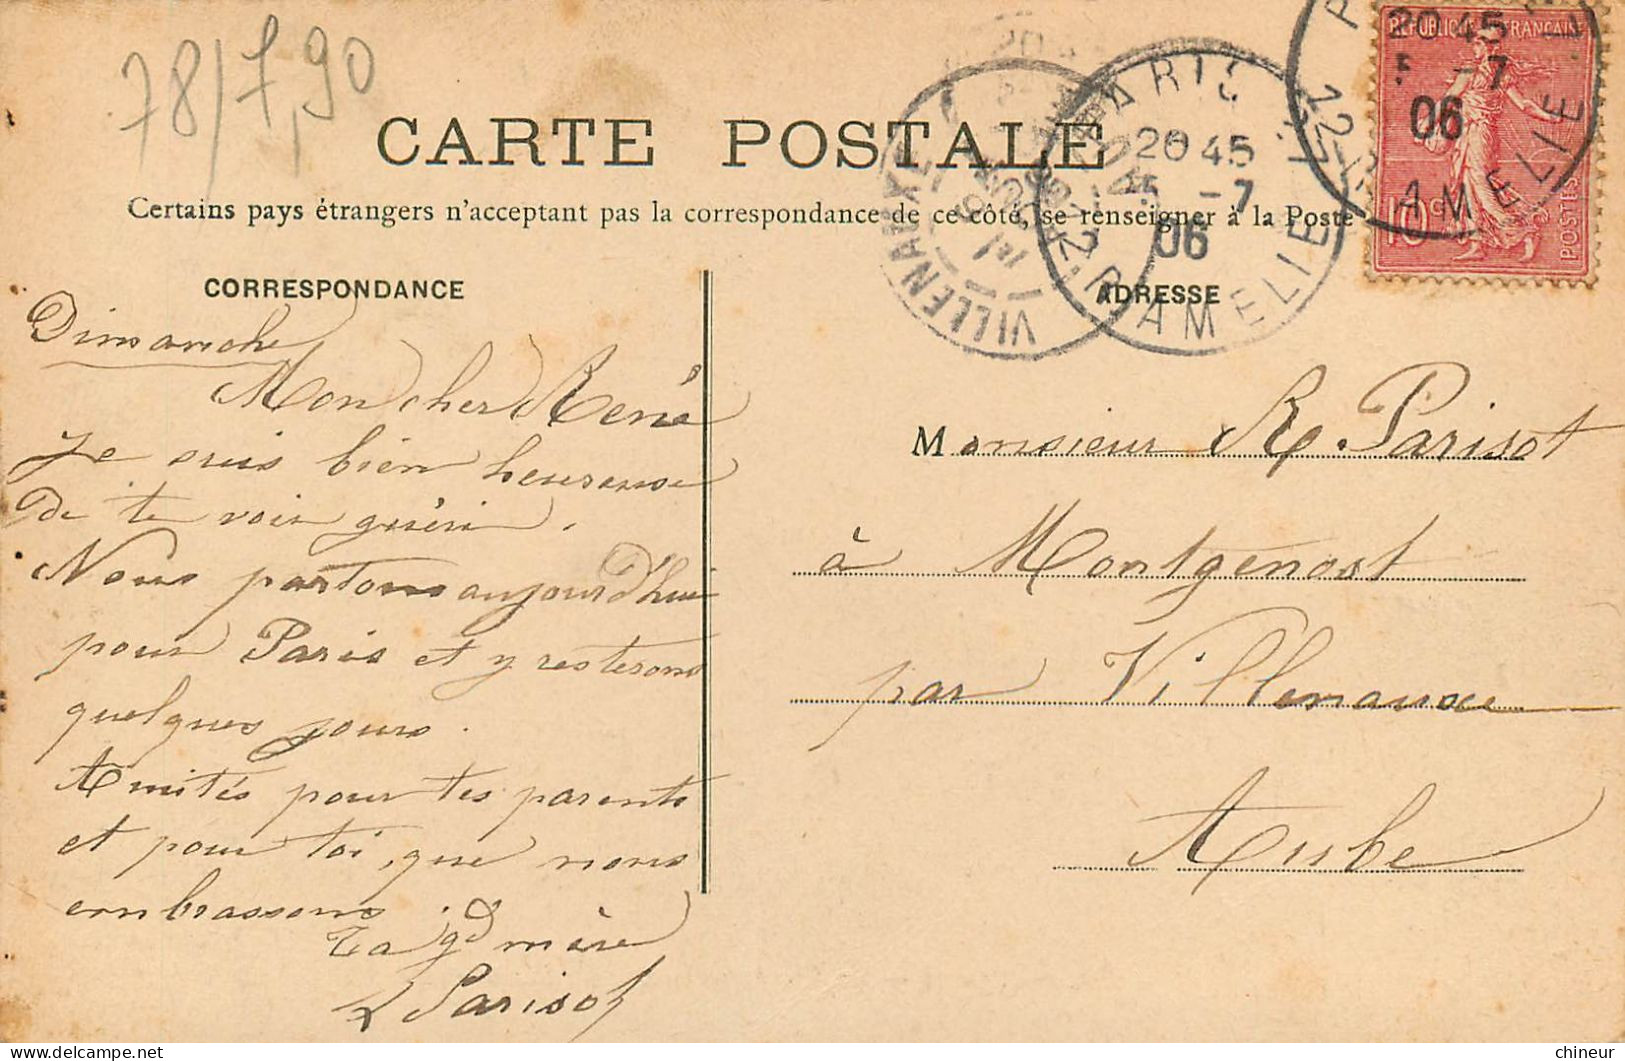 78/7,90
CARTE POSTALE
Certains pays étrangers n'acceptant pas la correspondance de ce côté, se renseigner à la Poste
CORRESPONDANCE
ADRESSE
REPUBLIQUE FRANÇAISE
10c
POSTES
PARIS
20 45
5 -7
06
AMELIE
20 45
5 -7
06
AMELIE
VILLENAUXE
AUBE
Dimanche
Mon cher René
Je suis bien heureuse
de te voir guéri.
Nous partons aujourd'hui
pour Paris et y resterons
quelques jours.
Amitiés pour tes parents
et pour toi, que nous
embrassons.
Ta gd mère
Parisot
Monsieur R. Parisot
à Montgenost
par Villenauxe
Aube
chineur